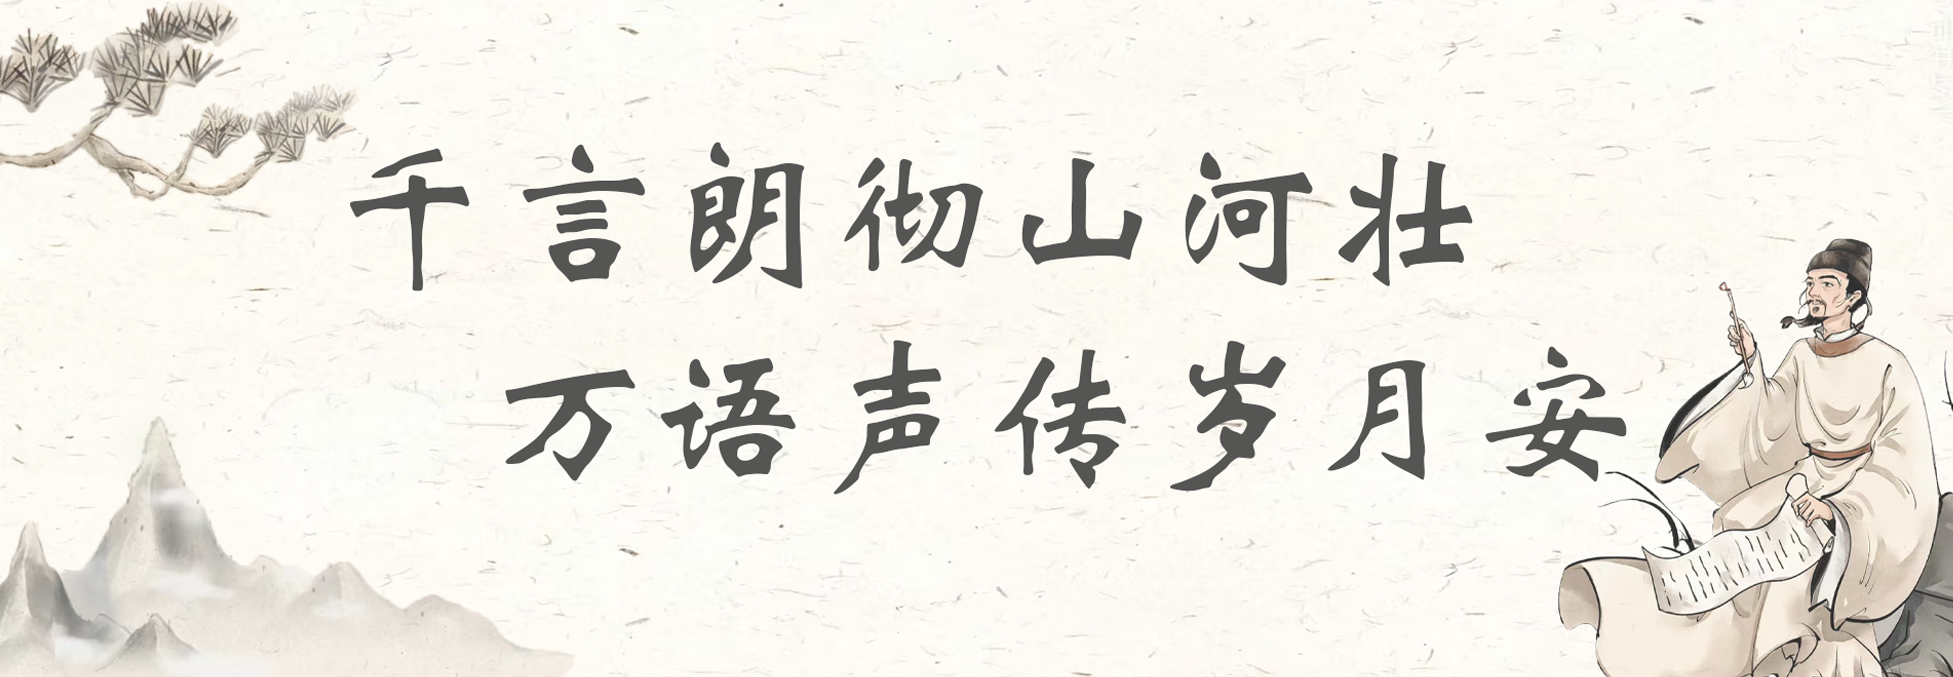 千言朗彻山河壮
万语声传岁月安